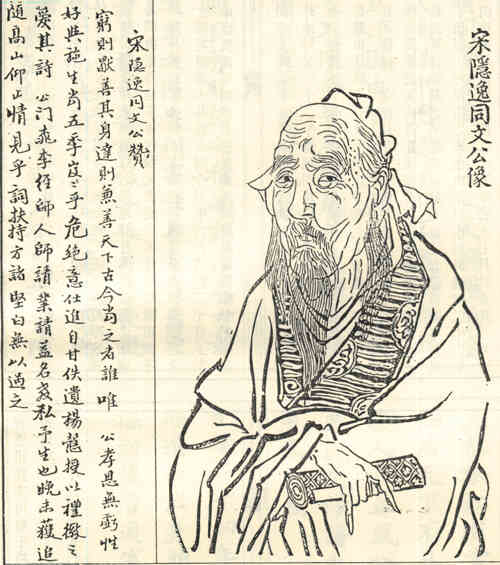 宋隱逸同文公像
宋隱逸同文公贊
窮則獨善其身達則兼善天下古今尚之者誰唯 公孝思無虧性
好興施生當五季岌〻乎危絕意仕進自甘佚遺楊龍授以禮徵之
愛其詩 公门桃李經師人師請業請益名彥私予生也晚未獲追
隨高山仰止情見乎詞扶持方諸堅白無以過之